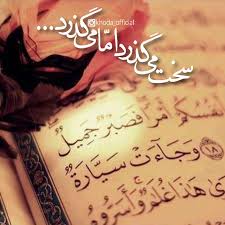 @khoda_official
سخت می گذرد امّا می گذرد...
أَنفُسُكُمْ أَمْرًا فَصَبْرٌ جَمِيلٌ
١٨ وَجَآءَتْ سَيَّارَةٌ
هَٰذَا غُلَٰمٌ وَأَسَرُّوهُ